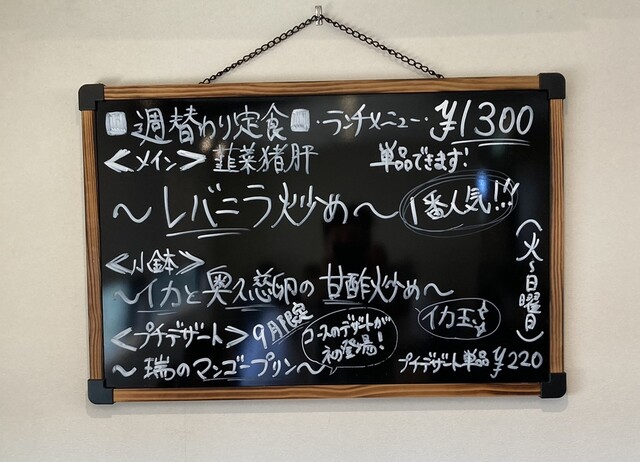 週替わり定食 ・ランチメニュー・ ¥1300
<メイン> 韮菜猪肝 単品できます!
〜レバニラ炒め〜 1番人気!!
<小鉢>
〜イカと奥久慈卵の甘酢炒め〜
イカ玉
(火〜日曜日)
<プチデザート> 9月限定
コースのデザートが
初登場!
〜瑞のマンゴープリン〜 プチデザート単品¥220